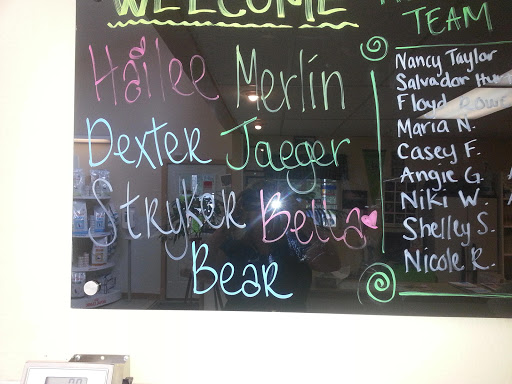 WELCOME
Hailee Merlin
Dexter Jaeger
Stryker Bella
Bear
TEAM
Nancy Taylor
Salvador
Floyd
Maria N.
Casey F.
Angie G.
Niki W.
Shelley S.
Nicole R.